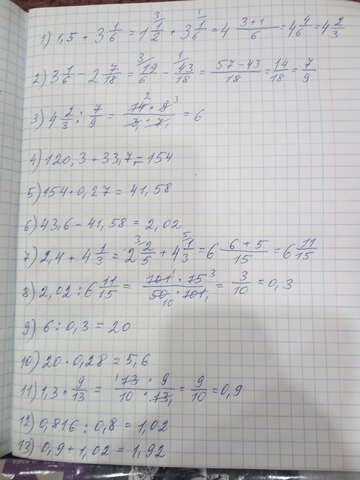 1) 1,5 + 3 1/6 = 1 1/2 + 3 1/6 = 4 (3+1)/6 = 4 4/6 = 4 2/3
2) 3 1/6 - 2 7/18 = 19/6 - 43/18 = (57-43)/18 = 14/18 = 7/9
3) 4 2/3 : 7/9 = (14 · 9)/(3 · 7) = 6
4) 120,3 + 33,7 = 154
5) 154 · 0,27 = 41,58
6) 43,6 - 41,58 = 2,02
7) 2,4 + 4 1/3 = 2 2/5 + 4 1/3 = 6 (6+5)/15 = 6 11/15
8) 2,02 : 6 11/15 = (101 · 15)/(50 · 101) = 3/10 = 0,3
9) 6 : 0,3 = 20
10) 20 · 0,28 = 5,6
11) 1,3 · 9/13 = (13 · 9)/(10 · 13) = 9/10 = 0,9
12) 0,816 : 0,8 = 1,02
13) 0,9 + 1,02 = 1,92